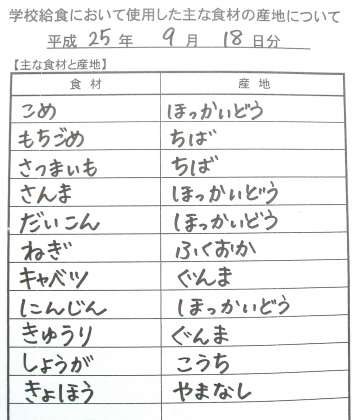 学校給食において使用した主な食材の産地について
平成 25 年 9 月 18 日分
【主な食材と産地】
食材 産地
こめ ほっかいどう
もちごめ ちば
さつまいも ちば
さんま ほっかいどう
だいこん ほっかいどう
ねぎ ふくおか
キャベツ ぐんま
にんじん ほっかいどう
きゅうり ぐんま
しょうが こうち
きょほう やまなし